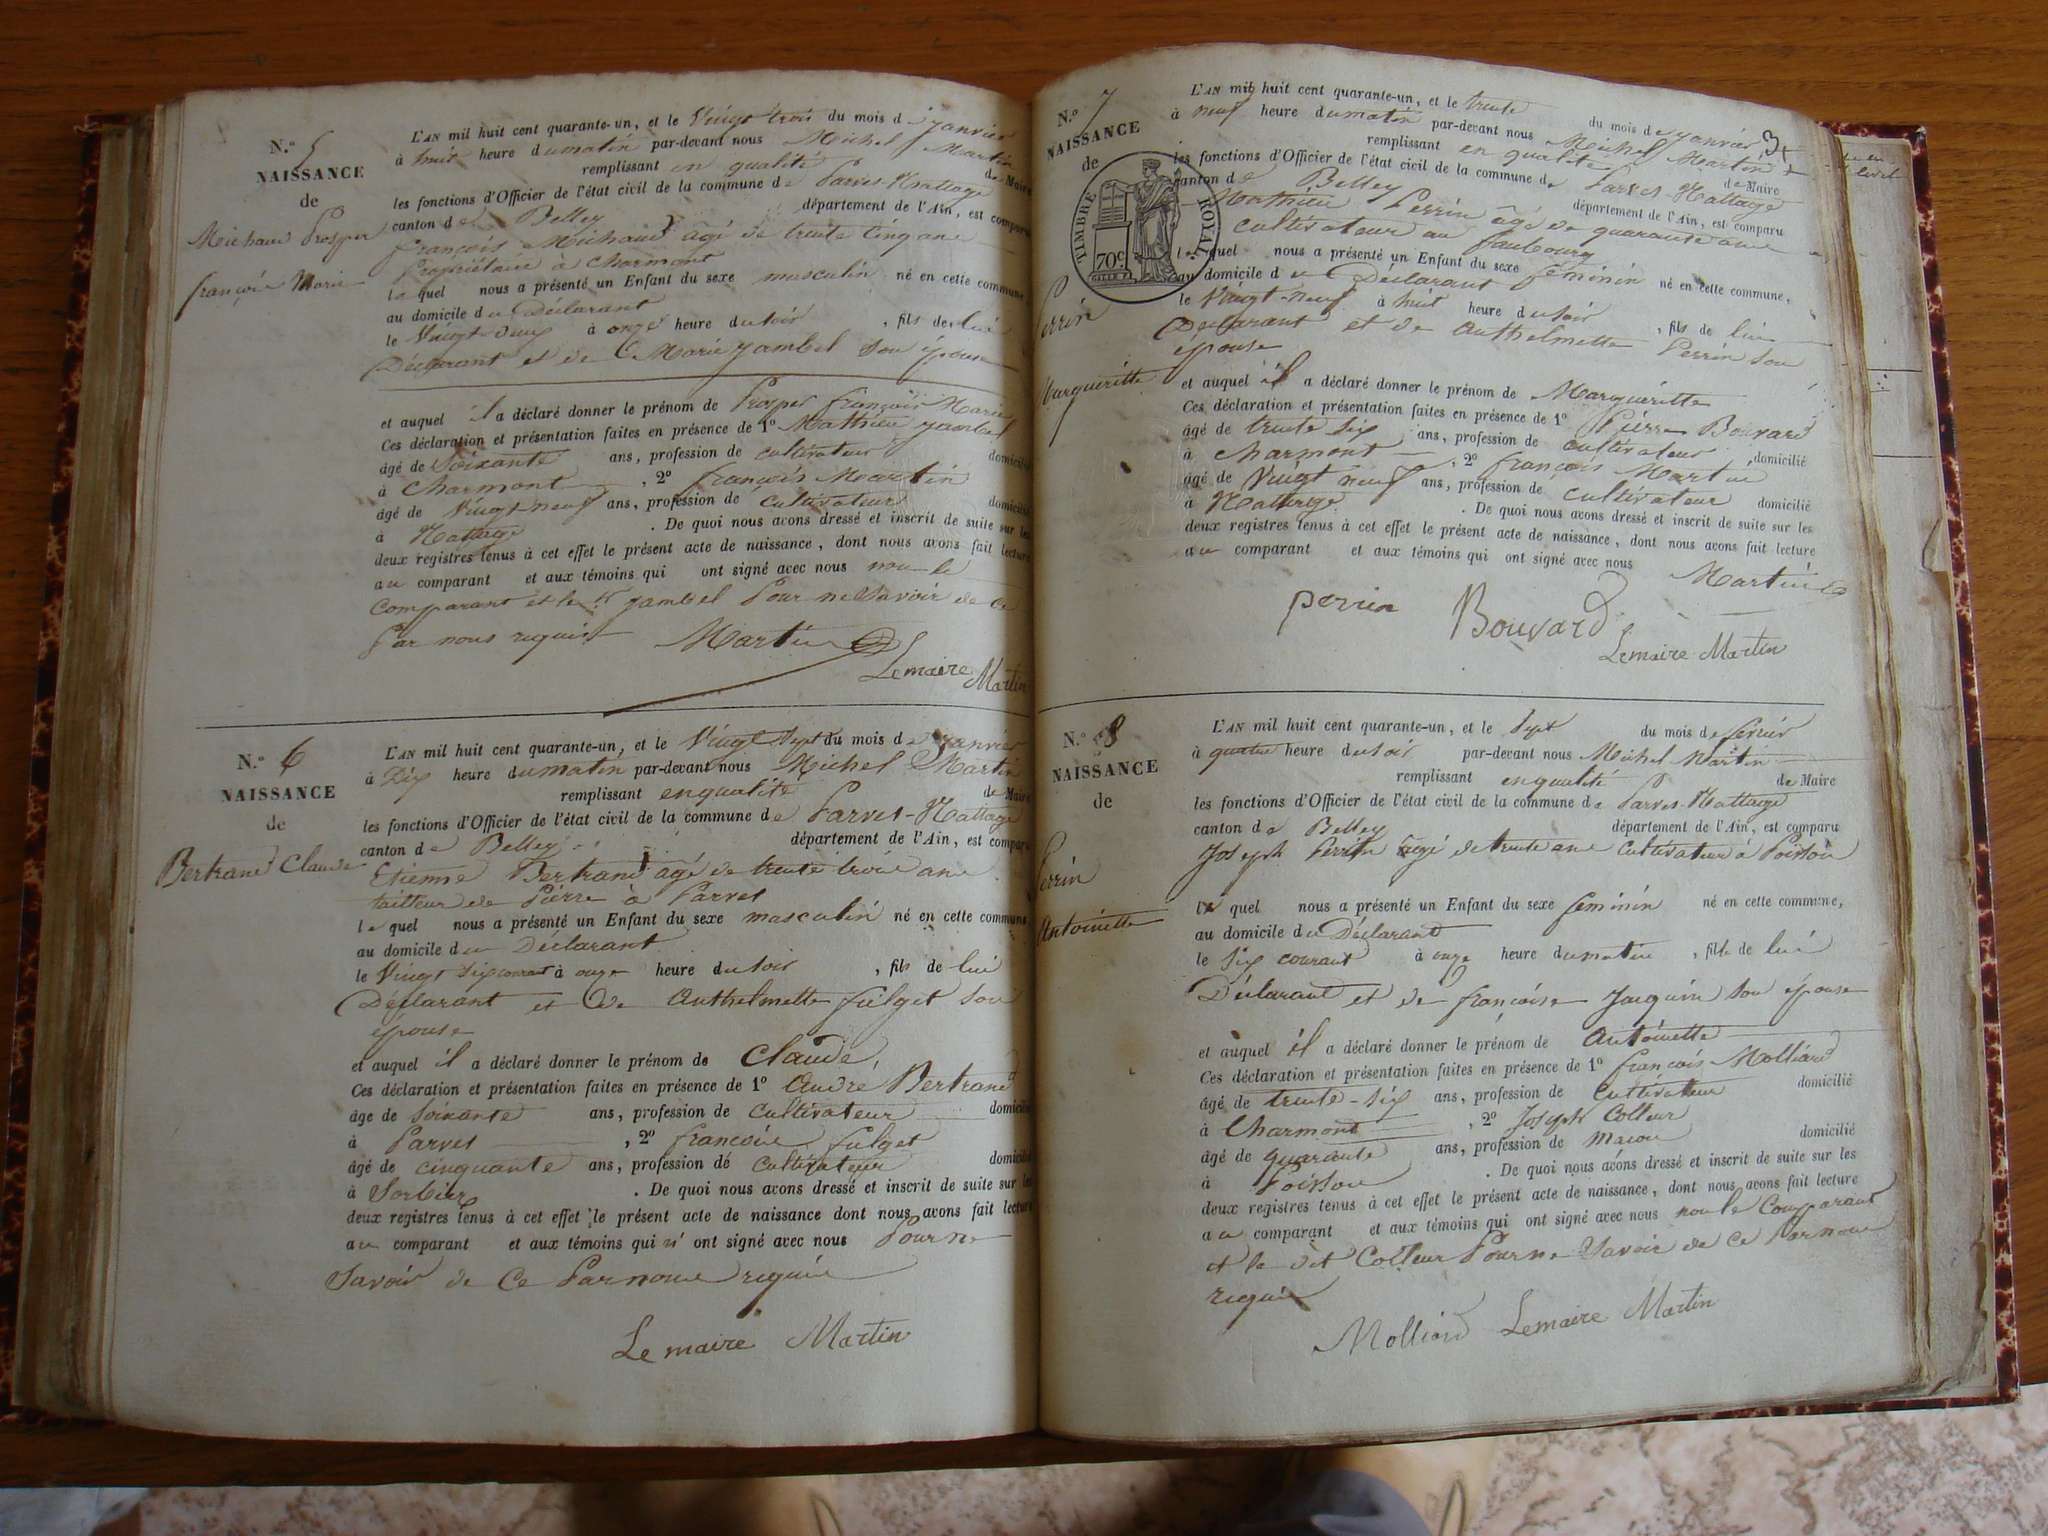 N.º 5
NAISSANCE
de
Michaud Prosper
françois Marie
L'AN mil huit cent quarante-un, et le Vingt trois du mois de janvier
à huit heure du matin par-devant nous Michel Martin
remplissant en qualité de Maire
les fonctions d'Officier de l'état civil de la commune de Parves-Nattage
canton de Belley département de l'Ain, est comparu
françois Michaud âgé de trente cinq ans
Propriétaire à Charmont
lequel nous a présenté un Enfant du sexe masculin né en cette commune,
au domicile du Déclarant
le Vingt-deux à onze heure du soir, fils de lui
Déclarant et de Marie jambel Son épouse
et auquel il a déclaré donner le prénom de Prosper françois Marie
Ces déclaration et présentation faites en présence de 1º Mathieu jambel
âgé de Soixante ans, profession de cultivateur domicilié
à Charmont, 2º françois Martin
âgé de Vingt-neuf ans, profession de cultivateur domicilié
à Nattage. De quoi nous avons dressé et inscrit de suite sur les
deux registres tenus à cet effet le présent acte de naissance, dont nous avons fait lecture
au comparant et aux témoins qui ont signé avec nous non le
Comparant et le dt jambel Pour ne Savoir de ce
Par nous requis Martin
Lemaire Martin
N.º 6
NAISSANCE
de
Bertrand Claude
L'AN mil huit cent quarante-un, et le Vingt Sept du mois de janvier
à Dix heure du matin par-devant nous Michel Martin
remplissant en qualité de Maire
les fonctions d'Officier de l'état civil de la commune de Parves-Nattage
canton de Belley département de l'Ain, est comparu
Etienne Bertrand âgé de trente trois ans
tailleur de Pierre à Parves
lequel nous a présenté un Enfant du sexe masculin né en cette commune,
au domicile du Déclarant
le Vingt Six courant à onze heure du soir, fils de lui
Déclarant et de Anthelmette fulget Son
épouse
et auquel il a déclaré donner le prénom de Claude
Ces déclaration et présentation faites en présence de 1º André Bertrand
âge de Soixante ans, profession de Cultivateur domicilié
à Parves, 2º françois fulget
âgé de cinquante ans, profession de Cultivateur domicilié
à Sorbier. De quoi nous avons dressé et inscrit de suite sur les
deux registres tenus à cet effet le présent acte de naissance dont nous avons fait lecture
au comparant et aux témoins qui n'ont signé avec nous Pour ne
Savoir de Ce Par nous requis
Le maire Martin
3
N.º 7
NAISSANCE
de
TIMBRE ROYAL
70c
Perrin
Margueritte
L'AN mil huit cent quarante-un, et le trente du mois de janvier
à neuf heure du matin par-devant nous Michel Martin
remplissant en qualité de Maire
les fonctions d'Officier de l'état civil de la commune de Parves-Nattage
canton de Belley département de l'Ain, est comparu
Mathieu Perrin âgé de quarante ans
cultivateur au faubourg
lequel nous a présenté un Enfant du sexe féminin né en cette commune,
au domicile du Déclarant
le Vingt-neuf à huit heure du soir, fils de lui
Déclarant et de Anthelmette Perrin Son
épouse
et auquel il a déclaré donner le prénom de Margueritte
Ces déclaration et présentation faites en présence de 1º Pierre Bouvard
âgé de trente six ans, profession de cultivateur domicilié
à Charmont, 2º françois Martin
âgé de Vingt neuf ans, profession de cultivateur domicilié
à Nattage. De quoi nous avons dressé et inscrit de suite sur les
deux registres tenus à cet effet le présent acte de naissance, dont nous avons fait lecture
au comparant et aux témoins qui ont signé avec nous
Martin
perrin Bouvard
Lemaire Martin
N.º 8
NAISSANCE
de
Perrin
Antoinette
L'AN mil huit cent quarante-un, et le Sept du mois de fevrier
à quatre heure du soir par-devant nous Michel Martin
remplissant en qualité de Maire
les fonctions d'Officier de l'état civil de la commune de Parves-Nattage
canton de Belley département de l'Ain, est comparu
Joseph Perrin âgé de trente ans Cultivateur à Poisson
lequel nous a présenté un Enfant du sexe feminin né en cette commune,
au domicile du Déclarant
le Six courant à onze heure du matin, fille de lui
Déclarant et de françoise Jacquin Son épouse
et auquel il a déclaré donner le prénom de Antoinette
Ces déclaration et présentation faites en présence de 1º françois Molliard
âgé de trente-six ans, profession de Cultivateur domicilié
à Charmont, 2º Joseph Colleur
âgé de quarante ans, profession de macon domicilié
à Poisson. De quoi nous avons dressé et inscrit de suite sur les
deux registres tenus à cet effet le présent acte de naissance, dont nous avons fait lecture
au comparant et aux témoins qui ont signé avec nous non le Comparant
et le dit Colleur Pour ne Savoir de ce Par nous
requis
Molliard Lemaire Martin